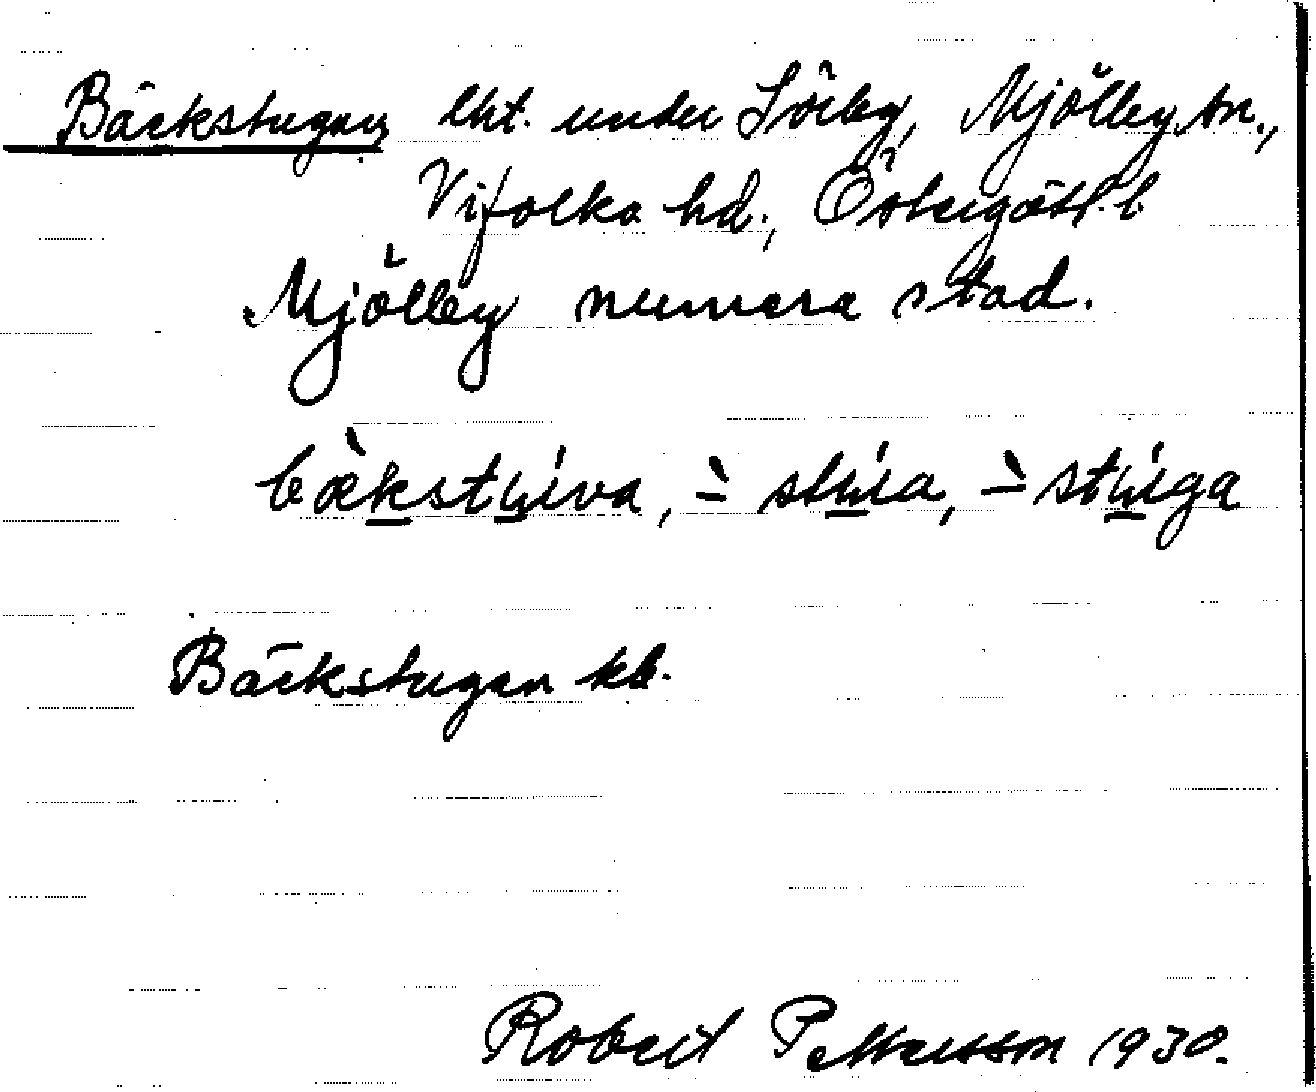 Bäckstugan, lht. under Sörby, Mjölby sn.,
Vifolka hd., Östergötl. l.
Mjölby numera stad.
bækstɥiva, -̀ stɥia, -̀ stɥiga
Bäckstugan kb.
Robert Pettersson 1930.